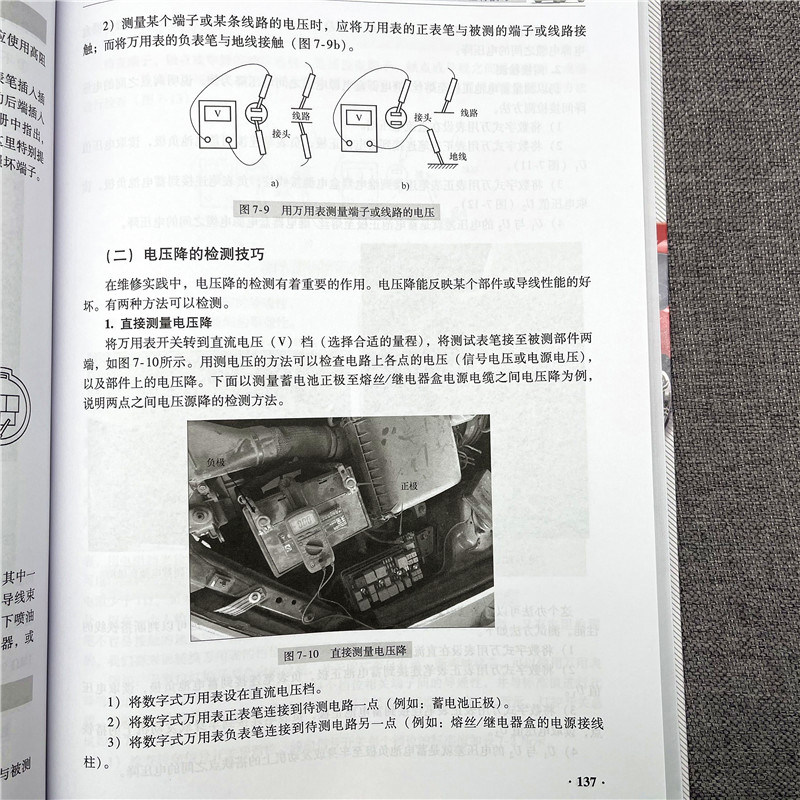 2）测量某个端子或某条线路的电压时，应将万用表的正表笔与被测的端子或线路接
触；而将万用表的负表笔与地线接触（图 7-9b）。
V
线路
接头
a)
V
接头
线路
地线
b)
图 7-9 用万用表测量端子或线路的电压
（二）电压降的检测技巧
在维修实践中，电压降的检测有着重要的作用。电压降能反映某个部件或导线性能的好
坏。有两种方法可以检测。
1. 直接测量电压降
将万用表开关转到直流电压（V）档（选择合适的量程），将测试表笔接至被测部件两
端，如图 7-10所示。用测电压的方法可以检查电路上各点的电压（信号电压或电源电压），
以及部件上的电压降。下面以测量蓄电池正极至熔丝/继电器盒电源电缆之间电压降为例，
说明两点之间电压源降的检测方法。
负极
正极
图 7-10 直接测量电压降
1）将数字式万用表设在直流电压档。
2）将数字式万用表正表笔连接到待测电路一点（例如：蓄电池正极）。
3）将数字式万用表负表笔连接到待测电路另一点（例如：熔丝/继电器盒的电源接线
柱）。
·137·
应使用高阻
表笔插入插
后端插入
册中指出，
这里特别提
损坏端子。
其中一
导线束
下喷油
器，或
与被测